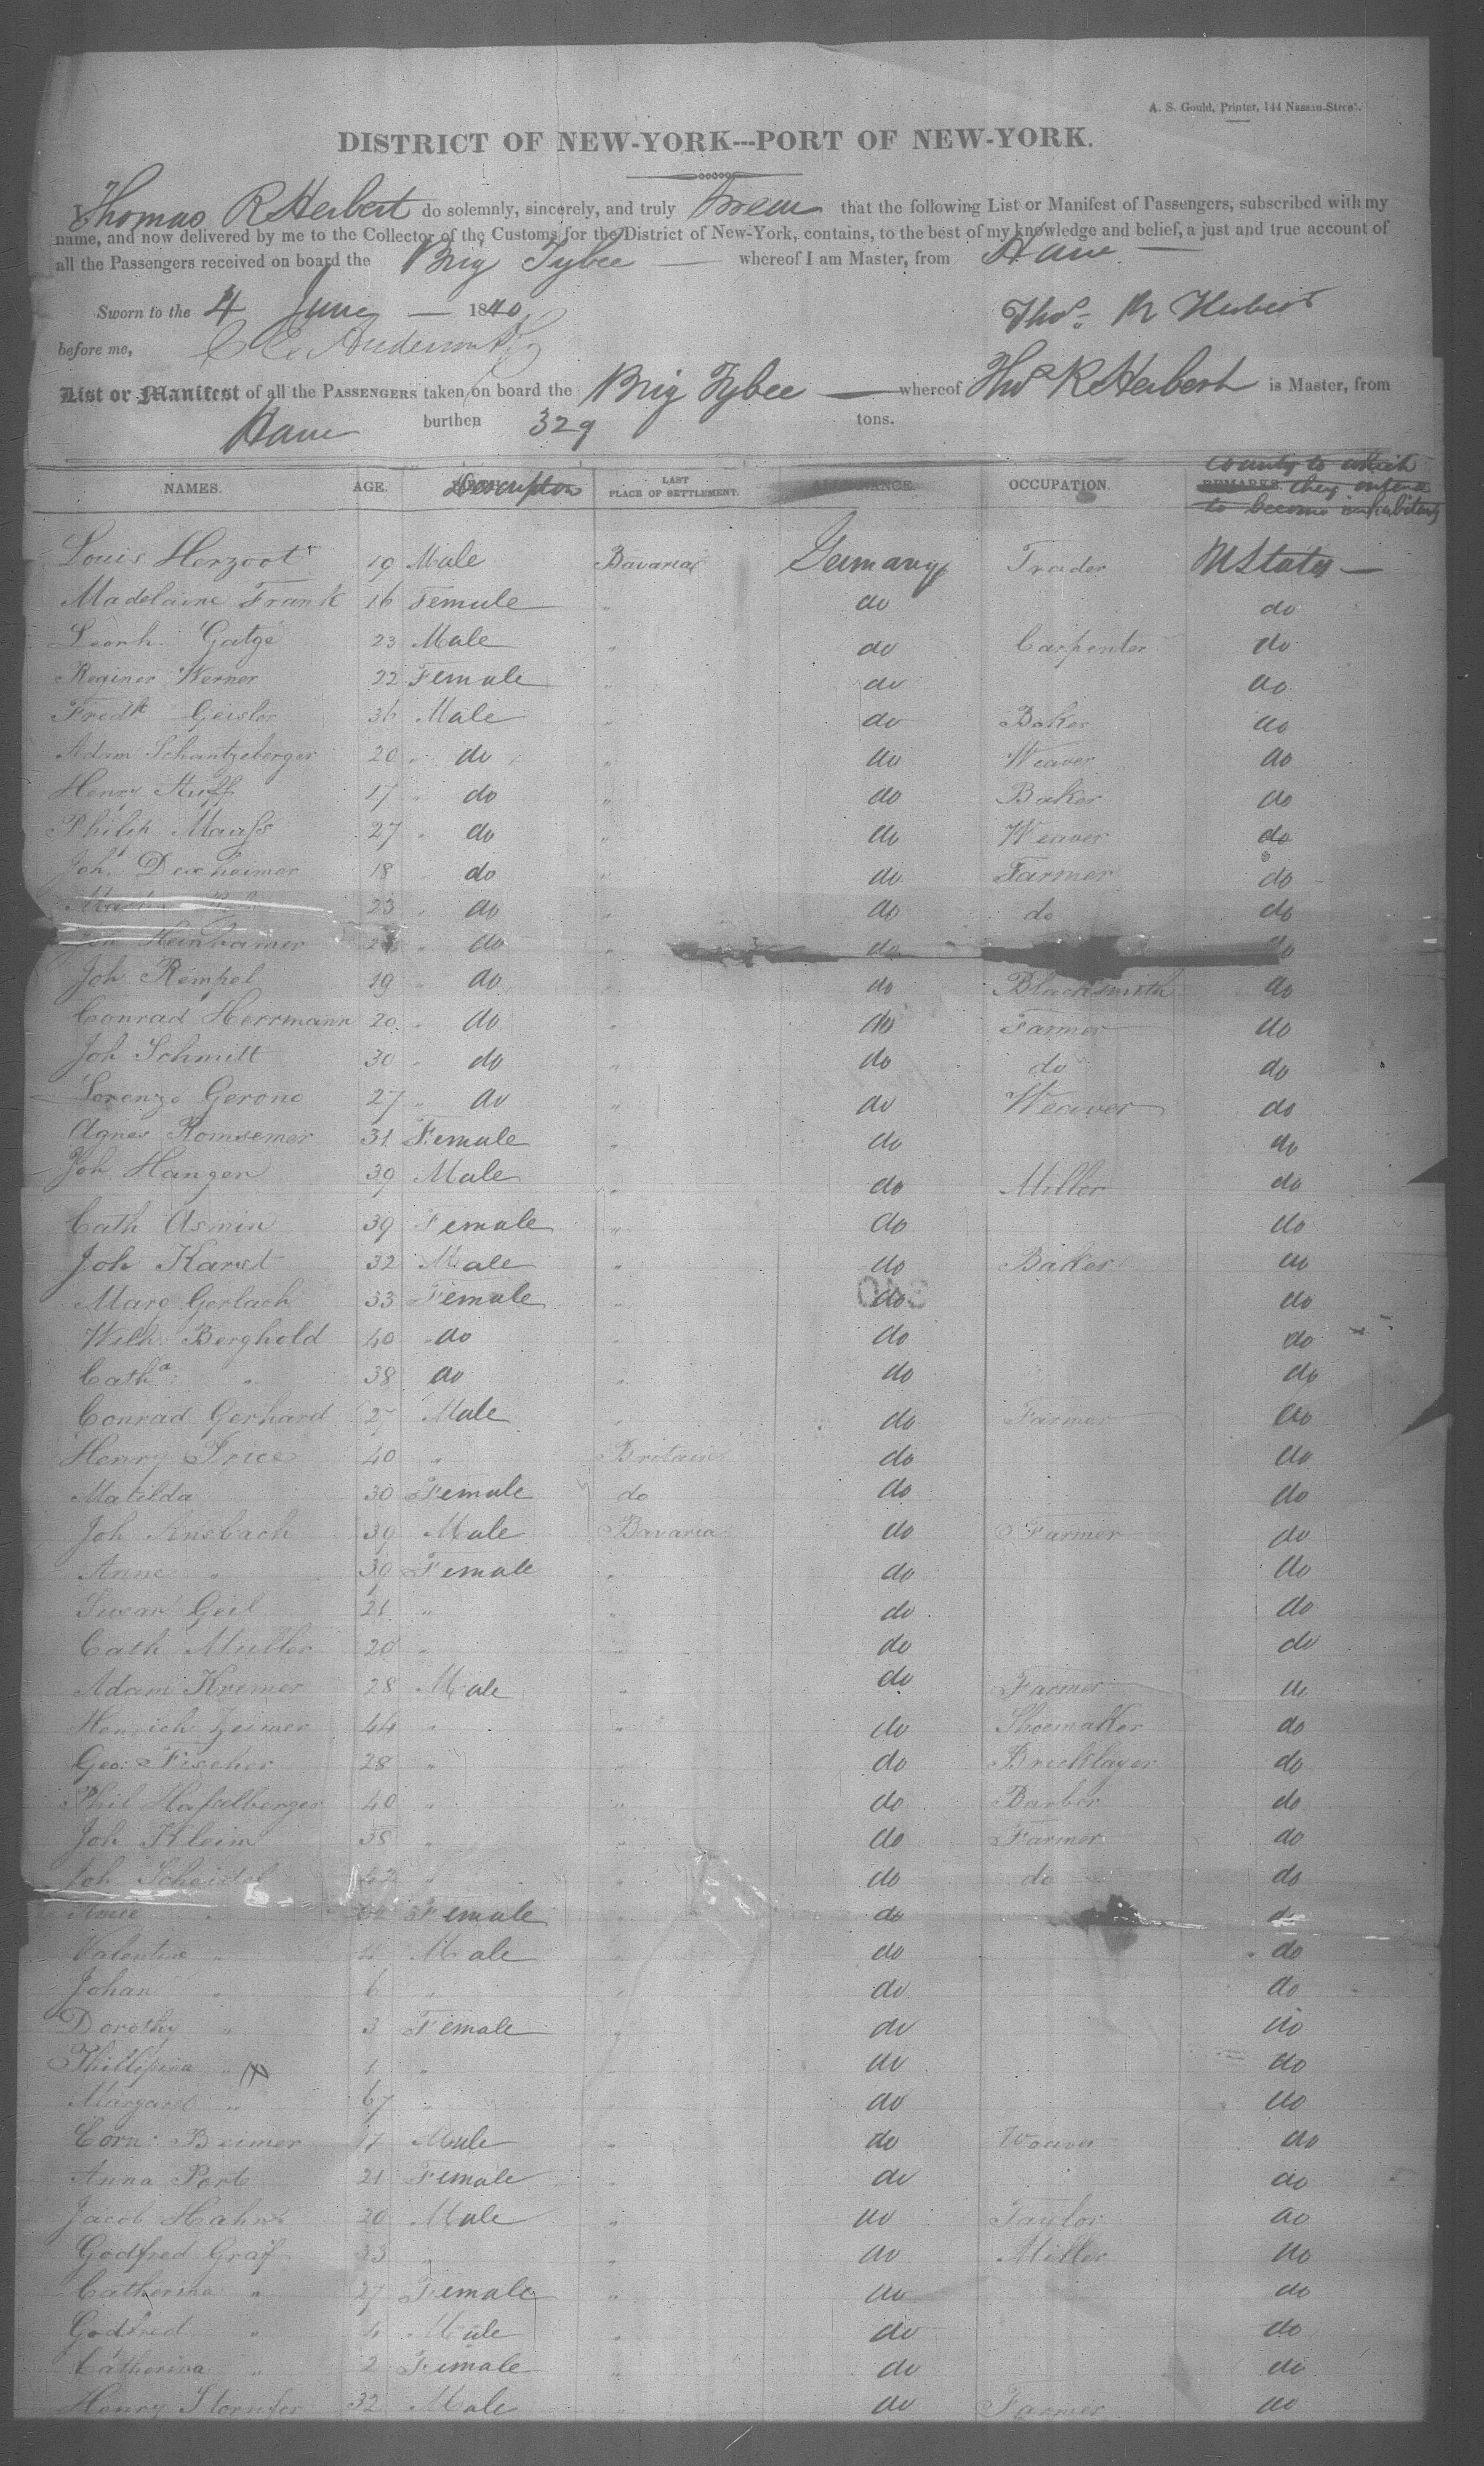 A. S. Gould, Printer, 144 Nassau-Street.
DISTRICT OF NEW-YORK---PORT OF NEW-YORK.
I, Thomas R Herbert do solemnly, sincerely, and truly Swear that the following List or Manifest of Passengers, subscribed with my
name, and now delivered by me to the Collector of the Customs for the District of New-York, contains, to the best of my knowledge and belief, a just and true account of
all the Passengers received on board the Brig Tybee — whereof I am Master, from Havre —
Sworn to the 4 June — 1840 Thos R Herbert
before me, Anderson
List or Manifest of all the PASSENGERS taken on board the Brig Tybee — whereof Thos R Herbert is Master, from
Havre burthen 329 tons.
NAMES. AGE. Description LAST PLACE OF SETTLEMENT. ALLEGIANCE. OCCUPATION. REMARKS. County to which they intend to become inhabitants
Louis Herzoot 19 Male Bavaria Germany Trader U States —
Madelaine Frank 16 Female " do do
Leonh. Gatge 23 Male " do Carpenter do
Reginer Werner 22 Female " do do
Fredk Geisler 36 Male " do Baker do
Adam Schantzeberger 20 " do " do Weaver do
Henry Huff 17 " do " do Baker do
Philip Maass 27 " do " do Weaver do
Joh. Dexheimer 18 " do " do Farmer do
23 " do " do do do
Joh Heinhamer " do " do do
Joh Rempel 19 " do " do Blacksmith do
Conrad Herrmann 20 " do " do Farmer do
Joh Schmitt 30 " do " do do do
Lorenzo Gerono 27 " do " do Weaver do
Agnes Romsemer 31 Female " do do
Joh Hangen 39 Male " do Miller do
Cath Asmin 39 Female " do do
Joh Karst 32 Male " do Baker do
Marg Gerlach 33 Female " do do
Wilh. Berghold 40 " do " do do
Catha: " 38 do " do do
Conrad Gerhard 27 Male " do Farmer do
Henry Price 40 " Britain do do
Matilda 30 Female do do do
Joh Ansbach 39 Male Bavaria do Farmer do
Anne " 39 Female " do do
Susan Geil 21 " " do do
Cath Muller 20 " " do do
Adam Kremer 28 Male " do Farmer do
Henrich Zeimer 44 " " do Shoemaker do
Geo: Fischer 28 " " do Bricklayer do
Phil Hasselberger 40 " " do Barber do
Joh Kleim 38 " " do Farmer do
Joh Scheidel 42 " " do do do
Female " do do
Valentine " 4 Male " do do
Johan " 6 " " do do
Dorothy " 3 Female " do do
Phillipina " 1 " do do
Margaret " 67 " do do
Corn: Beimer 17 Male " do Weaver do
Anna Port 21 Female " do do
Jacob Hahn 20 Male " do Taylor do
Godfred Graf 33 " " do Miller do
Catherina " 27 Female " do do
Godfred " 4 Male " do do
Catherina " 2 Female " do do
Henry 32 Male " do Farmer do